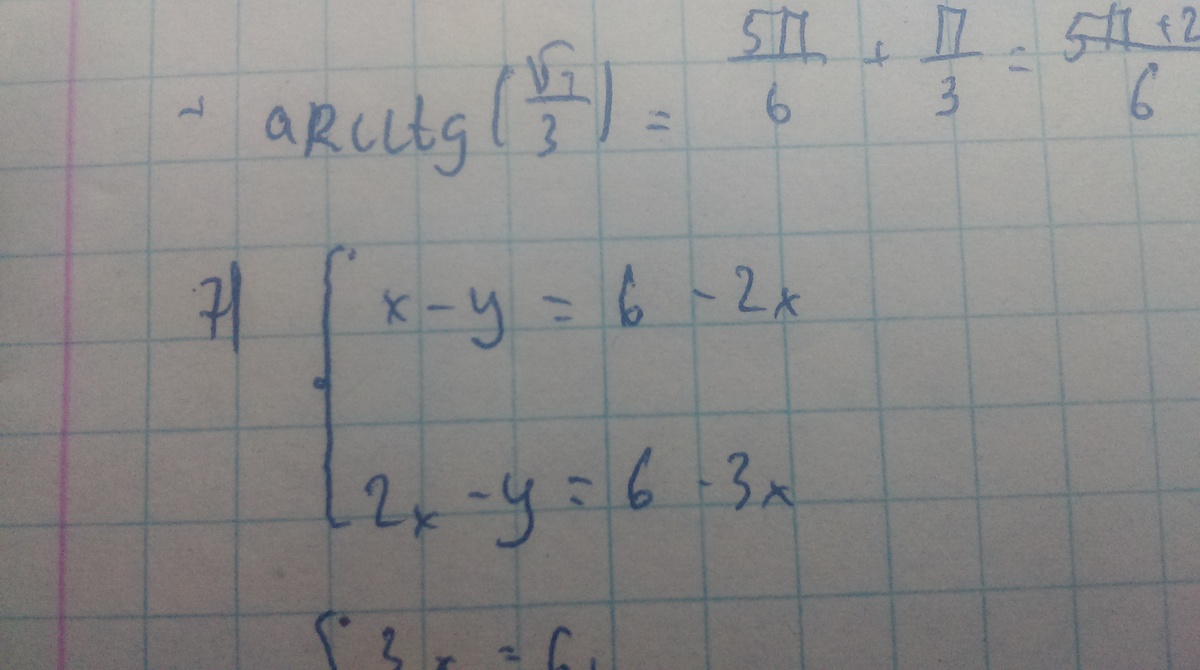 + arcctg(√3/3) = 5π/6 + π/3 = 5π+2/6
7) { x - y = 6 - 2x
2x - y = 6 - 3x
{ 3x = 6